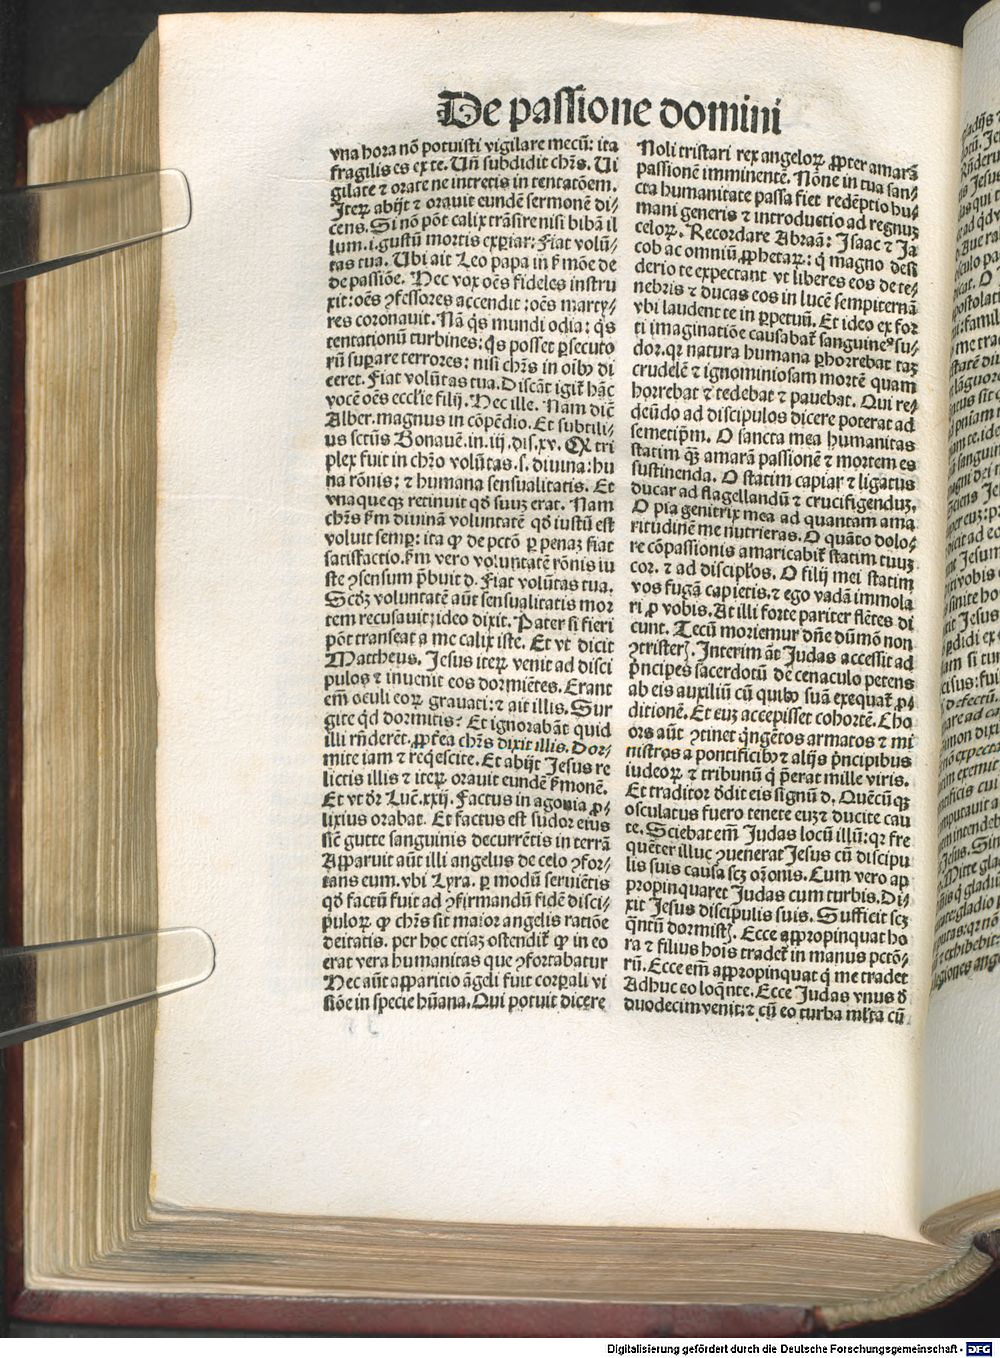 De passione domini
vna hora nõ potuisti vigilare mecũ: ita
fragilis es ex te. Uñ subdidit chrs̃. Ui
gilate ⁊ orate ne intretis in tentatõem.
Iterꝝ abijt ⁊ orauit eundẽ sermonẽ di⸗
cens. Si nõ põt calix trãsire nisi bibã il
lum .i. gustũ mortis exꝑiar: Fiat volũ⸗
tas tua. Ubi ait Leo papa in ẜmõe de
de passiõe. Hec vox oẽs fideles instru
xit: oẽs ꝯfessores accendit: oẽs marty⸗
res coronauit. Nã q̃s mundi odia: q̃s
tentationũ turbines: q̃s posset ꝑsecuto
rũ suꝑare terrores: nisi chrs̃ in oibꝰ di
ceret. Fiat volũtas tua. Discãt igit᷑ hãc
vocẽ oẽs ecclie filij. Hec ille. Nam dic̃
Alber. magnus in cõpẽdio. Et subtili⸗
us sctũs Bonauẽ. in. iij. dis. xv. Ꝙ tri
plex fuit in chr̃o volũtas. s. diuina: hu
na rõnis: ⁊ humana sensualitatis. Et
vnaqueqꝫ retinuit qđ suuꝫ erat. Nam
chrs̃ ẜm diuinã voluntatẽ qđ iustũ est
voluit semꝑ: ita ꝙ de pctõ ꝑ penaꝫ fiat
satisfactio. ẜm vero voluntatẽ rõnis iu
ste ꝯsensum p̃buit d. Fiat volũtas tua.
Scđꝫ voluntatẽ aũt sensualitatis mor
tem recusauit; ideo dixit. Pater si fieri
põt transeat a me calix iste. Et vt dicit
Mattheus. Jesus iterꝝ venit ad disci
pulos ⁊ inuenit eos dormiẽtes. Erant
em̃ oculi eoꝝ grauati: ⁊ ait illis. Sur
gite qđ dormitis? Et ignorabãt quid
illi rñderẽt. ꝓpt̃ea chrs̃ dixit illis. Dor⸗
mite iam ⁊ req̃escite. Et abijt Jesus re
lictis illis ⁊ iterꝝ orauit eundẽ ẜmonẽ.
Et vt dr̃ Luc̃. xxij. Factus in agonia ꝓ⸗
lixius orabat. Et factus est sudor eius
sic̃ gutte sanguinis decurrẽtis in terrã
Apparuit aũt illi angelus de celo ꝯfor⸗
tans eum. vbi Lyra. ꝑ modũ seruiẽtis
qđ factũ fuit ad ꝯfirmandũ fidẽ disci⸗
puloꝝ ꝙ chrs̃ sit maior angelis ratiõe
deitatis. per hoc etiaꝫ ostendit᷑ ꝙ in eo
erat vera humanitas que ꝯfortabatur
Nec aũt apparitio ãgeli fuit corꝑali vi
siõe in specie hũana. Qui potuit dicere
Noli tristari rex angeloꝝ ꝓpter amarã
passionẽ imminentẽ. Nõne in tua san⸗
cta humanitate passa fiet redẽptio hu⸗
mani generis ⁊ introductio ad regnuꝫ
celoꝝ. Recordare Abraã: Isaac ⁊ Ja
cob ac omniũ ꝓphetaꝝ: q̃ magno desi
derio te expectant vt liberes eos de te⸗
nebris ⁊ ducas eos in lucẽ sempiternã
vbi laudent te in ꝑpetuũ. Et ideo ex for
ti imaginatiõe causabat᷑ sanguineꝰ su⸗
dor. qꝛ natura humana ꝑhorrebat taꝫ
crudelẽ ⁊ ignominiosam mortẽ quam
horrebat ⁊ tedebat ⁊ pauebat. Qui re⸗
deũdo ad discipulos dicere poterat ad
semetip̃m. O sancta mea humanitas
statim qꝫ amarã passionẽ ⁊ mortem es
sustinenda. O statim capiar ⁊ ligatus
ducar ad flagellandũ ⁊ crucifigenduꝫ.
O pia genitrix mea ad quantam ama
ritudinẽ me nutrieras. O quãto dolo⸗
re cõpassionis amaricabit᷑ statim tuuꝫ
cor. ⁊ ad discipl̃os. O filij mei statim
vos fugã capietis. ⁊ ego vadã immola
ri ꝓ vobis. At illi forte pariter flẽtes di
cunt. Tecũ moriemur dñe dũmõ non
ꝯtristerꝭ. Interim ãt Judas accessit ad
p̃ncipes sacerdotũ de cenaculo petens
ab eis auxiliũ cũ quibꝰ suã exequat᷑ ꝓ⸗
ditionẽ. Et euꝫ accepisset cohortẽ. Cho
ors aũt ꝯtinet q̃ngẽtos armatos ⁊ mi
nistros a pontificibꝰ ⁊ alijs p̃ncipibus
iudeoꝝ ⁊ tribunũ q̃ p̃erat mille viris.
Et traditor ddit eis signũ d. Quẽcũqꝫ
osculatus fuero tenete euꝫ ⁊ ducite cau
te. Sciebat em̃ Judas locũ illũ: qꝛ fre
quẽter illuc ꝯuenerat Jesus cũ discipu
lis suis causa scꝫ or̃onis. Cum vero ap
propinquaret Judas cum turbis. Di⸗
xit Jesus discipulis suis. Sufficit scꝫ
q̃ntũ dormistꝭ. Ecce appropinquat ho
ra ⁊ filius hoĩs tradet᷑ in manus pctõ⸗
rũ. Ecce em̃ appropinquat q̃ me tradet
Adhuc eo loq̃nte. Ecce Judas vnus đ
duodecim venit: ⁊ cũ eo turba ml̃ta cũ
Digitalisierung gefördert durch die Deutsche Forschungsgemeinschaft - DFG